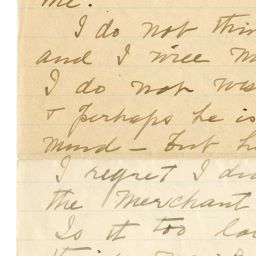 me.
I do not thin
and I will n
I do not wa
+ perhaps he is
mind - but h
I regret I did
the Merchant
Is it too la